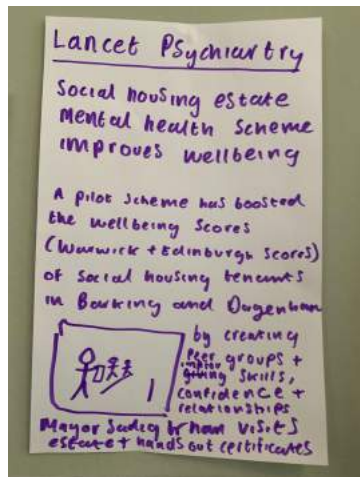 Lancet Psychiartry
Social housing estate
Mental health scheme
improves wellbeing
A pilot scheme has boosted
the wellbeing scores
(Warwick + Edinburgh scores)
of social housing tenants
in Barking and Dagenham
by creating
peer groups +
skills,
confidence +
relationships
Mayor Sadiq Khan visits
estate + hands out certificates